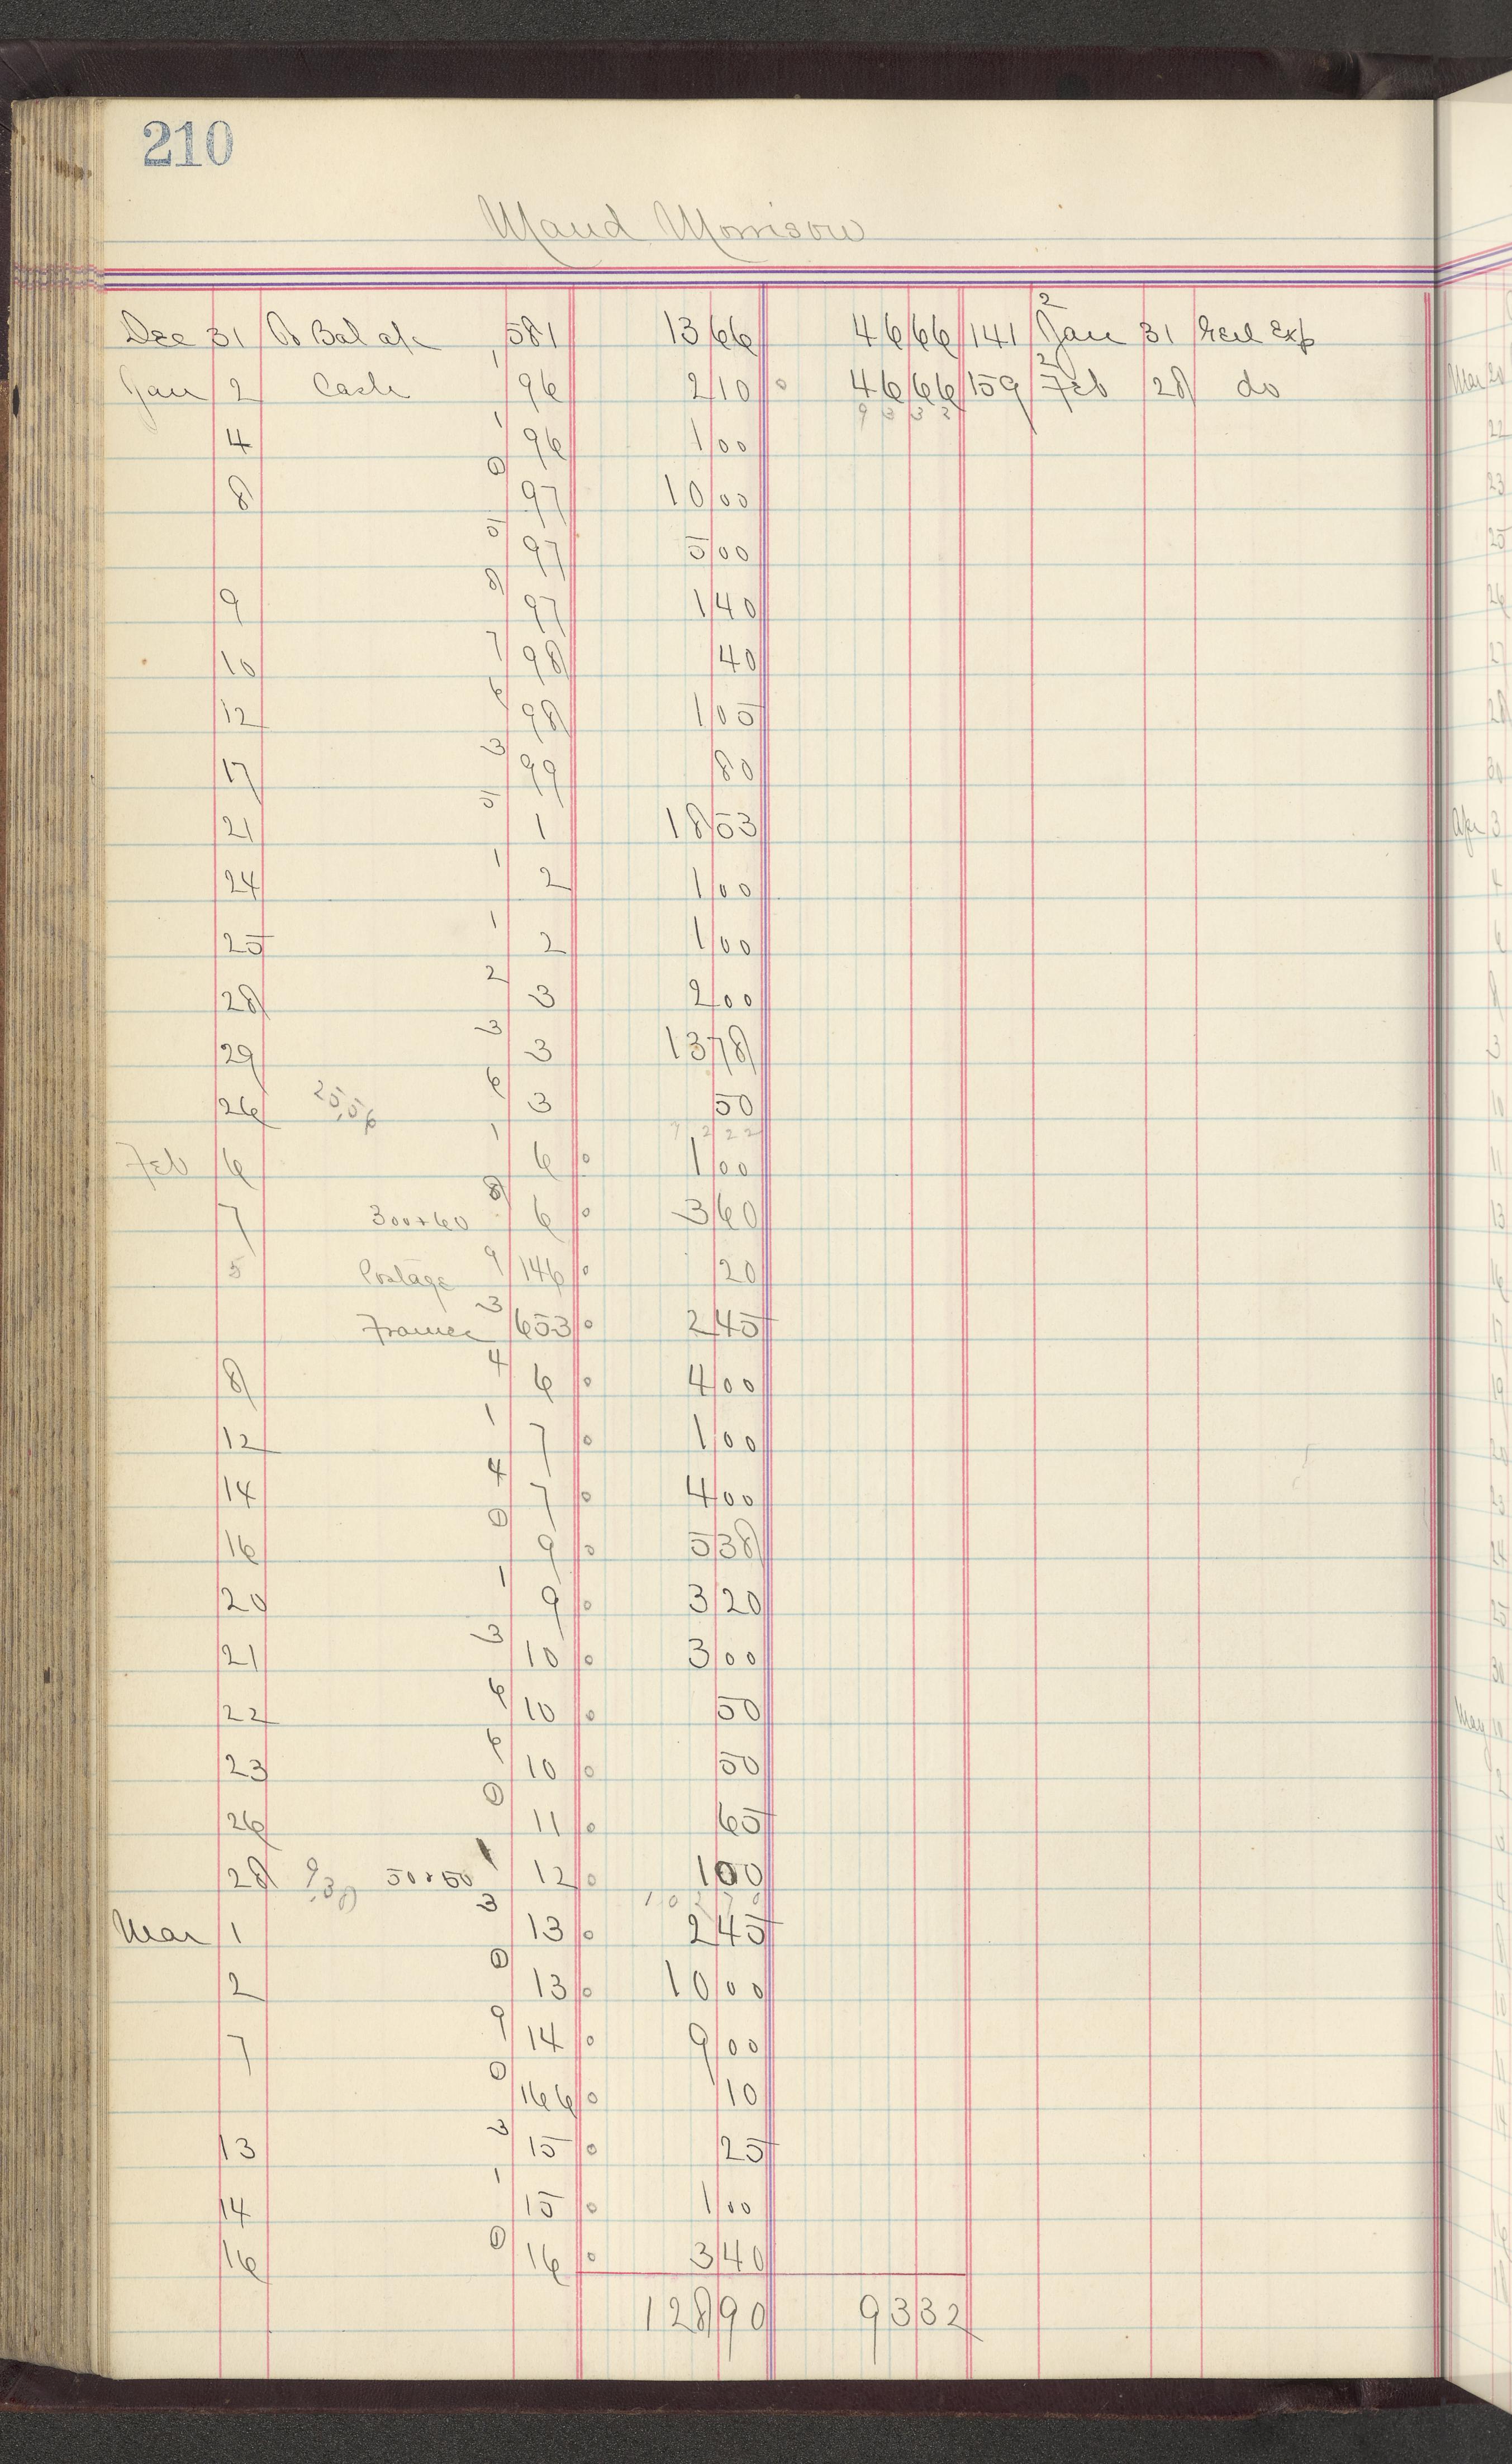 210
Maud Morrison
2
Dec 31 To Bal a/c 581 13 66 46 66 141 Jan 31 Genl Exp
2
Jan 2 Cash 1 96 2 10 46 66 159 Feb 28 do
93 32
4 1 96 1 00
8 0 97 10 00
5 97 5 00
9 8 97 1 40
10 7 98 40
12 6 98 1 05
17 3 99 80
21 5 1 18 53
24 1 2 1 00
25 1 2 1 00
28 2 3 2 00
29 3 3 13 78
26 25.56 6 3 50
72 22
Feb 6 1 6 1 00
7 300+60 8 6 3 60
5 Postage 9 146 20
3 653 2 45
8 4 6 4 00
12 1 7 1 00
14 4 7 4 00
16 0 9 5 38
20 1 9 3 20
21 3 10 3 00
22 6 10 50
23 6 10 50
26 0 11 65
28 9.38 50+50 1 12 1 00
Mar 1 3 13 2 45
2 0 13 10 00
7 9 14 9 00
0 166 10
13 3 15 25
14 1 15 1 00
16 0 16 3 40
128 90 93 32
Mar 20
22
23
25
26
27
28
30
Apr 3